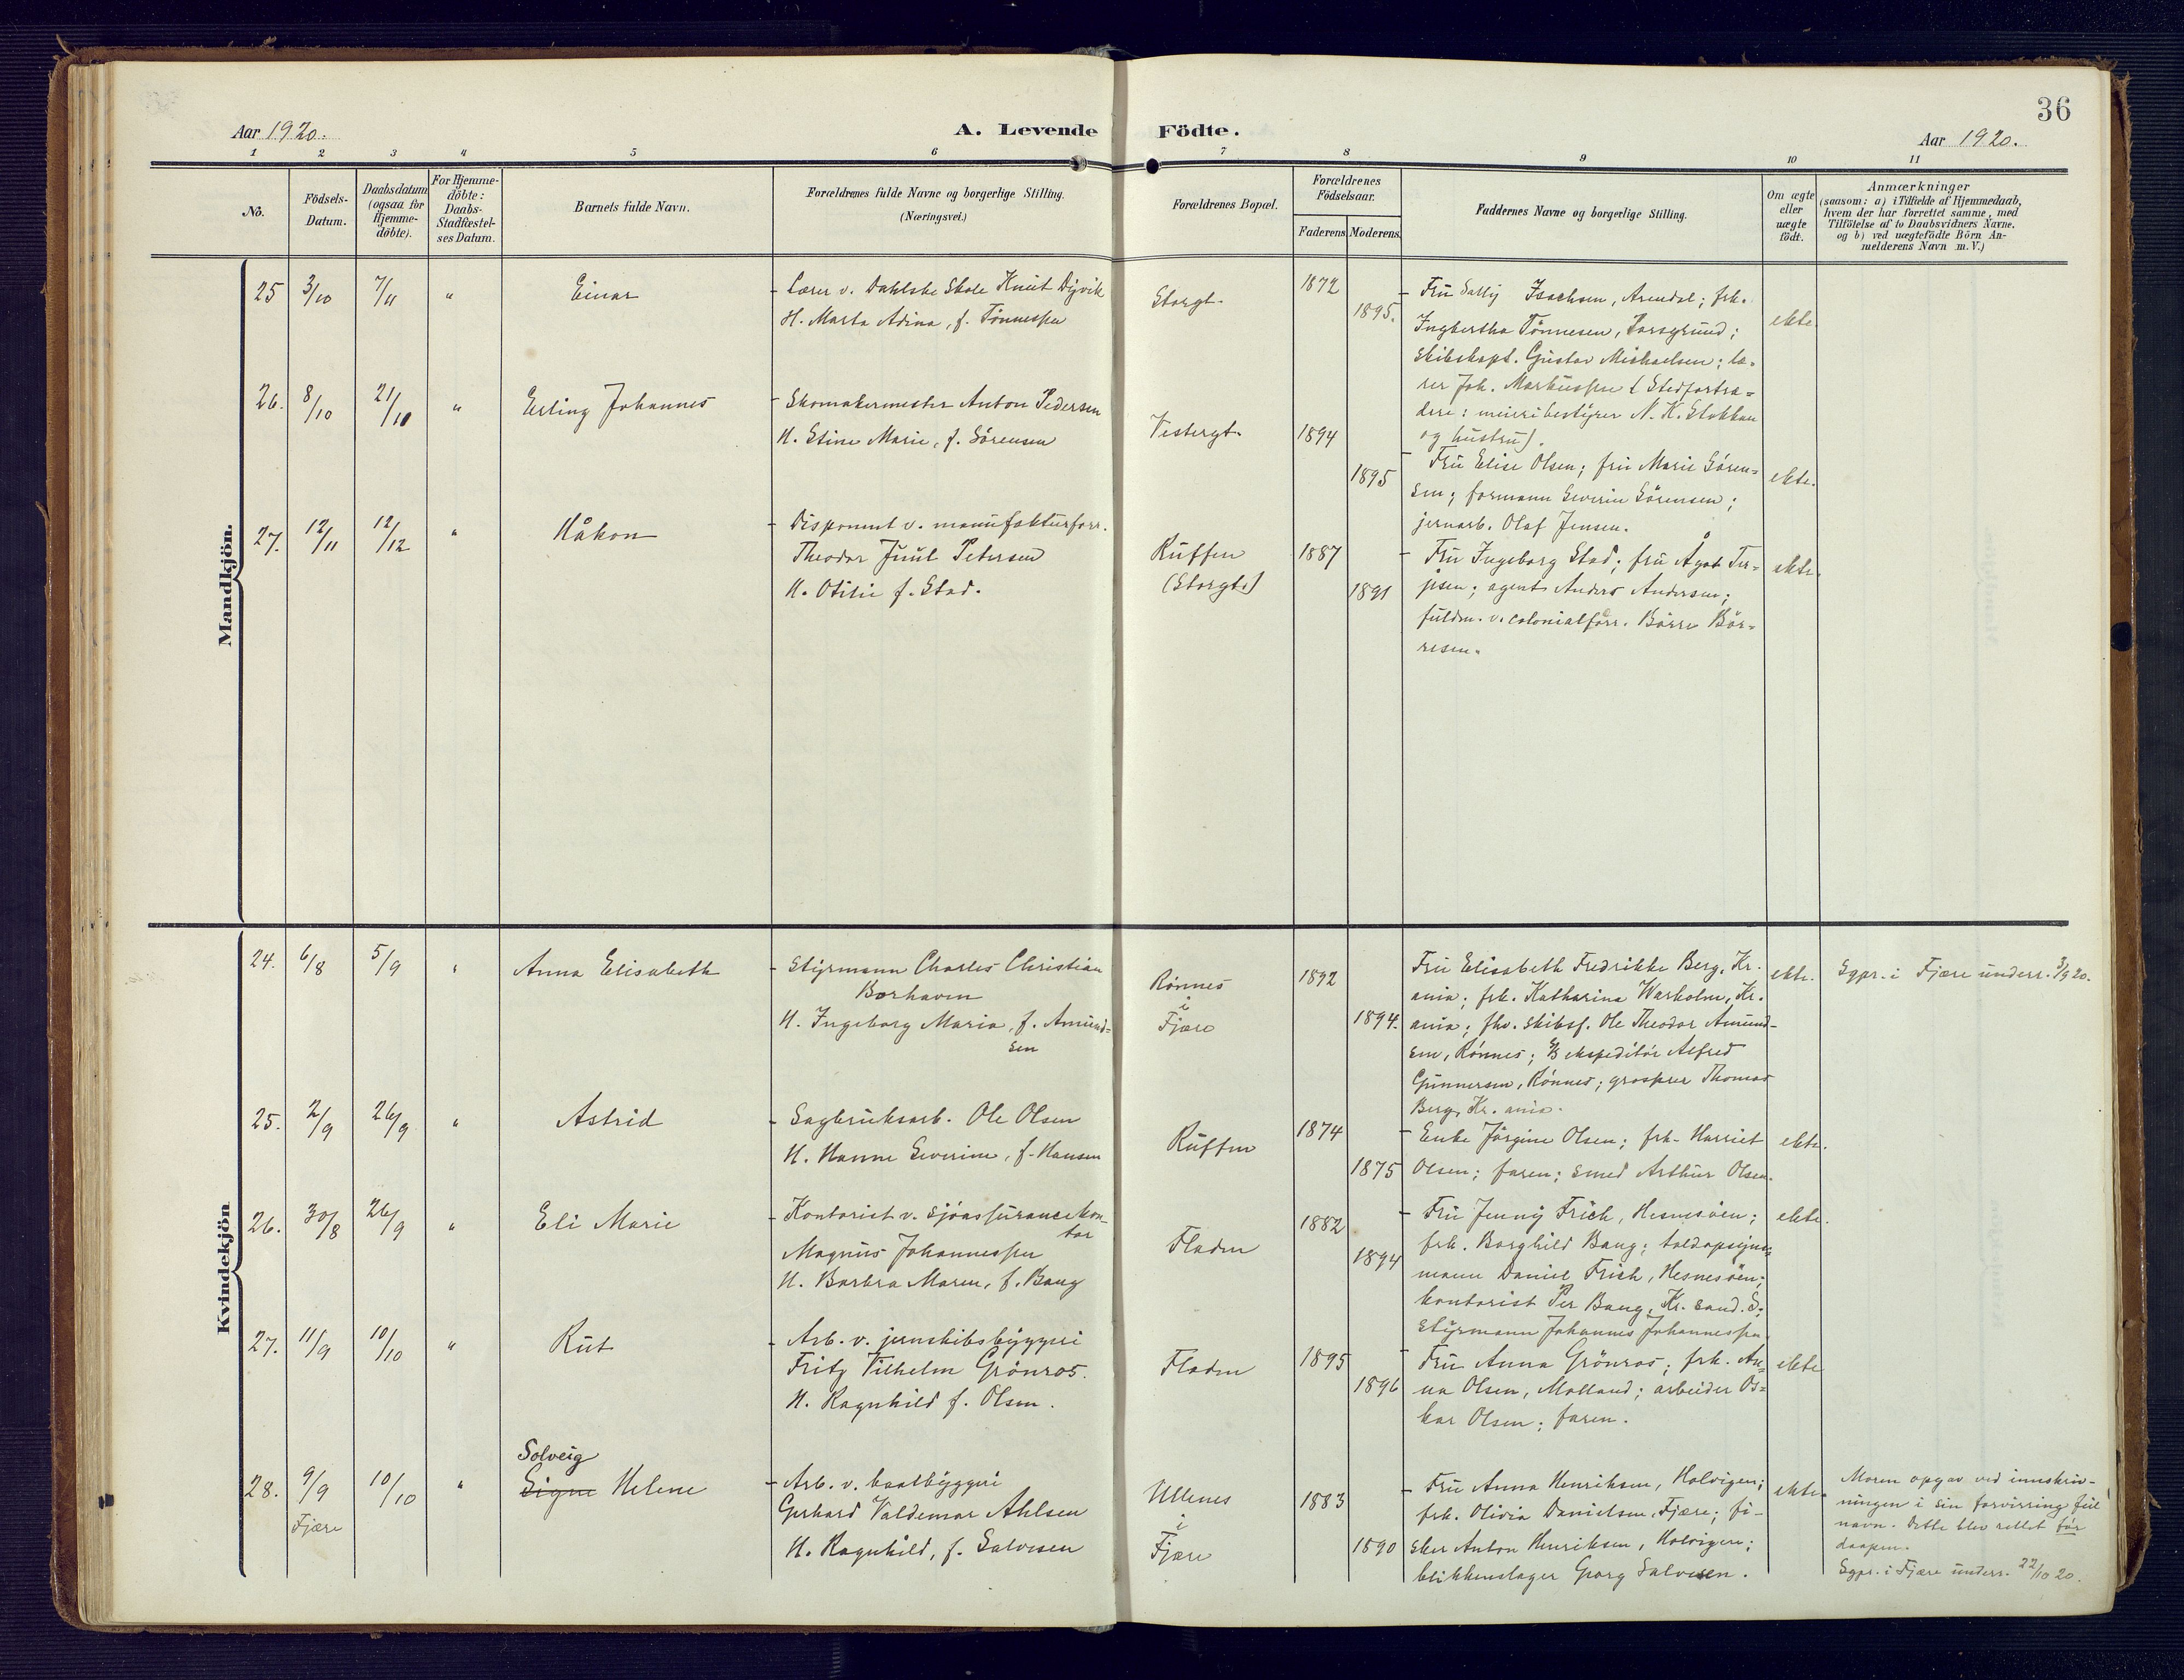 36
Aar 1920.
A. Levende Födte.
Aar 1920.
1 2 3 4 5 6 7 8 9 10 11
No.
Födsels-
Datum.
Daabsdatum
(ogsaa for
Hjemme-
döbte).
For Hjemme-
döbte:
Daabs-
Stadfæstel-
ses Datum.
Barnets fulde Navn.
Forældrenes fulde Navne og borgerlige Stilling.
(Næringsvei.)
Forældrenes Bopæl.
Forældrenes
Födselsaar.
Faderens. Moderens.
Faddernes Navne og borgerlige Stilling.
Om ægte
eller
uægte
födt.
Anmærkninger
(saasom: a) i Tilfælde af Hjemmedaab,
hvem der har forrettet samme, med
Tilföielse af to Daabsvidners Navne.
og b) ved uægtefödte Börn An-
melderens Navn m. V.)
Mandkjön.
25 3/10 7/11 "
Einar
- Lærer v. Dahlske Skole Knut Dyvik
H. Marta Adina, f. Tönnessen
Storgt.
1872
1895.
- Fru Sally Isachsen, Arendal; frk.
Ingbertha Tönnesen, Porsgrund;
skibskapt. Gustav Michaelsen; læ-
rer Joh. Markussen (Stedfortræ-
dere: meieribestyrer N. K. Stokkan
og hustru).
ekte.
26. 8/10 21/10 "
Erling Johannes
- Skomakermester Anton Pedersen
H. Stine Marie, f. Sörensen
Vestergt.
1894
1895
- Fru Elise Olsen; fru Marie Sören-
sen; formann Severin Sörensen;
jernarb. Olaf Jensen.
ekte.
27. 12/11 12/12 "
Håkon
- Disponent v. manufakturforr.
Theodor Juul Petersen
H. Otilie f. Stad.
Ruffen
(Storgt.)
1887
1891
- Fru Ingeborg Stad; fru Ågot Ter-
jesen; agent Anders Andersen;
fuldm. v. colonialforr. Börre Bör-
resen.
ekte.
Kvindekjön
24. 6/8 5/9 "
Anna Elisabeth
- Styrmann Charles Christian
Borhaven
H. Ingeborg Maria, f. Amund-
sen
Rönnes
i
Fjære
1892
1894.
Fru Elisabeth Fredrikke Berg, Kr.
ania; frk. Katharina Warholm, Kr.
ania; fhv. skibsf. Ole Theodor Amund-
sen, Rönnes; D/S ekspeditör Alfred
Gunnersen, Rönnes; grosserer Thomas
Berg, Kr. ania.
ekte.
Sgpr. i Fjære underr. 3/9 20.
25. 2/9 26/9 "
Astrid
- Sagbruksarb. Ole Olsen
H. Hanne Severine, f. Hansen
Ruffen
1874
1875
- Enke Jörgine Olsen; frk. Harriet
Olsen; faren; smed Arthur Olsen.
ekte.
26. 30/8 26/9 "
Eli Marie
- Kontorist v. sjöassurancekon-
tor
Magnus Johannessen
H. Barbra Maren, f. Bang
Fladen
1882
1894
- Fru Jenny Frich, Hesnesöen;
frk. Borghild Bang; toldopsyns-
mann Daniel Frich, Hesnesöen;
kontorist Per Bang, Kr. sand. S;
Styrmann Johannes Johannessen
ekte.
27. 11/9 10/10 "
Rut
- Arb. v. jernskibsbyggeri
Fritz Vilhelm Grönros.
H. Ragnhild f. Olsen.
Fladen
1895
1896
- Fru Anna Grönros; frk. An-
na Olsen, Molland; arbeider Os-
kar Olsen; faren.
ekte
28. 9/9 10/10 "
Fjære
Solveig
Signe Helene
- Arb. v. baatbyggeri
Gerhard Valdemar Ahlsen
H. Ragnhild, f. Salvesen
Ullenes
i
Fjære
1883
1890
- Fru Anna Henriksen, Holvigen;
frk. Olivia Danielsen, Fjære; fi-
sker Anton Henriksen, Holvigen;
blikkenslager Georg Salvesen.
ekte.
Moren opgav ved innskriv-
ningen i sin forvirring feil
navn. Dette blev rettet för
daapen.
Sgpr. i Fjære underr. 22/10 20.